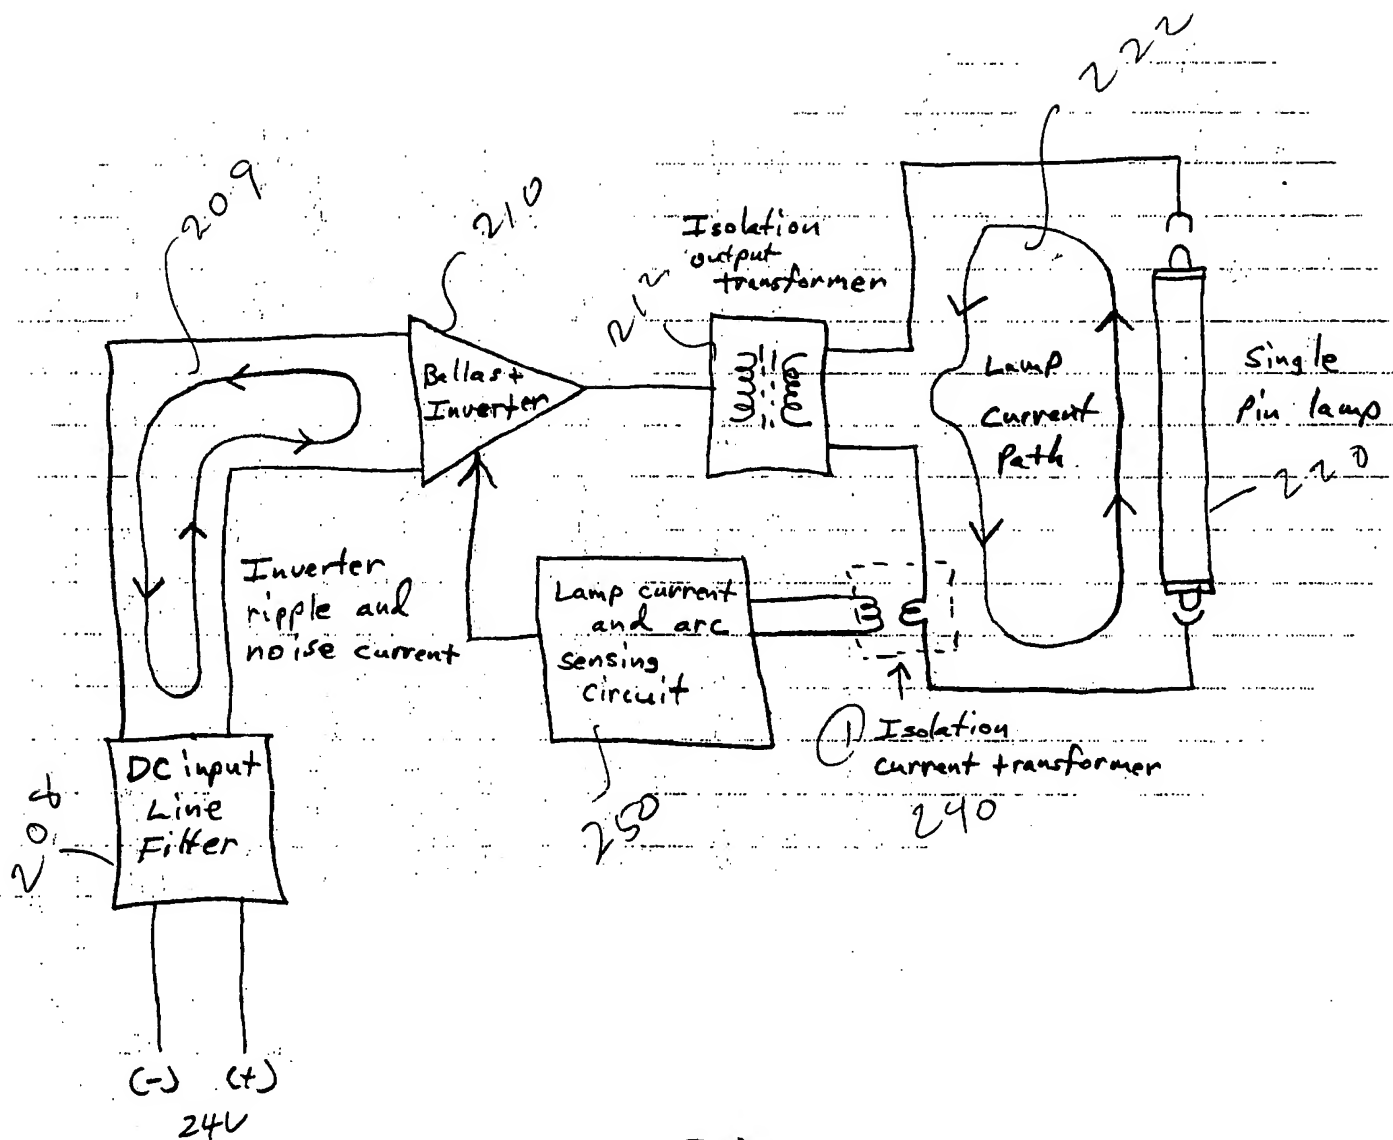 222
209
210
Isolation
output
transformer
212
Ballast
Inverter
Lamp
Current
Path
Single
Pin lamp
220
Inverter
ripple and
noise current
Lamp current
and arc
sensing
circuit
250
1 Isolation
current transformer
240
DC input
Line
Filter
(-) (+)
24V